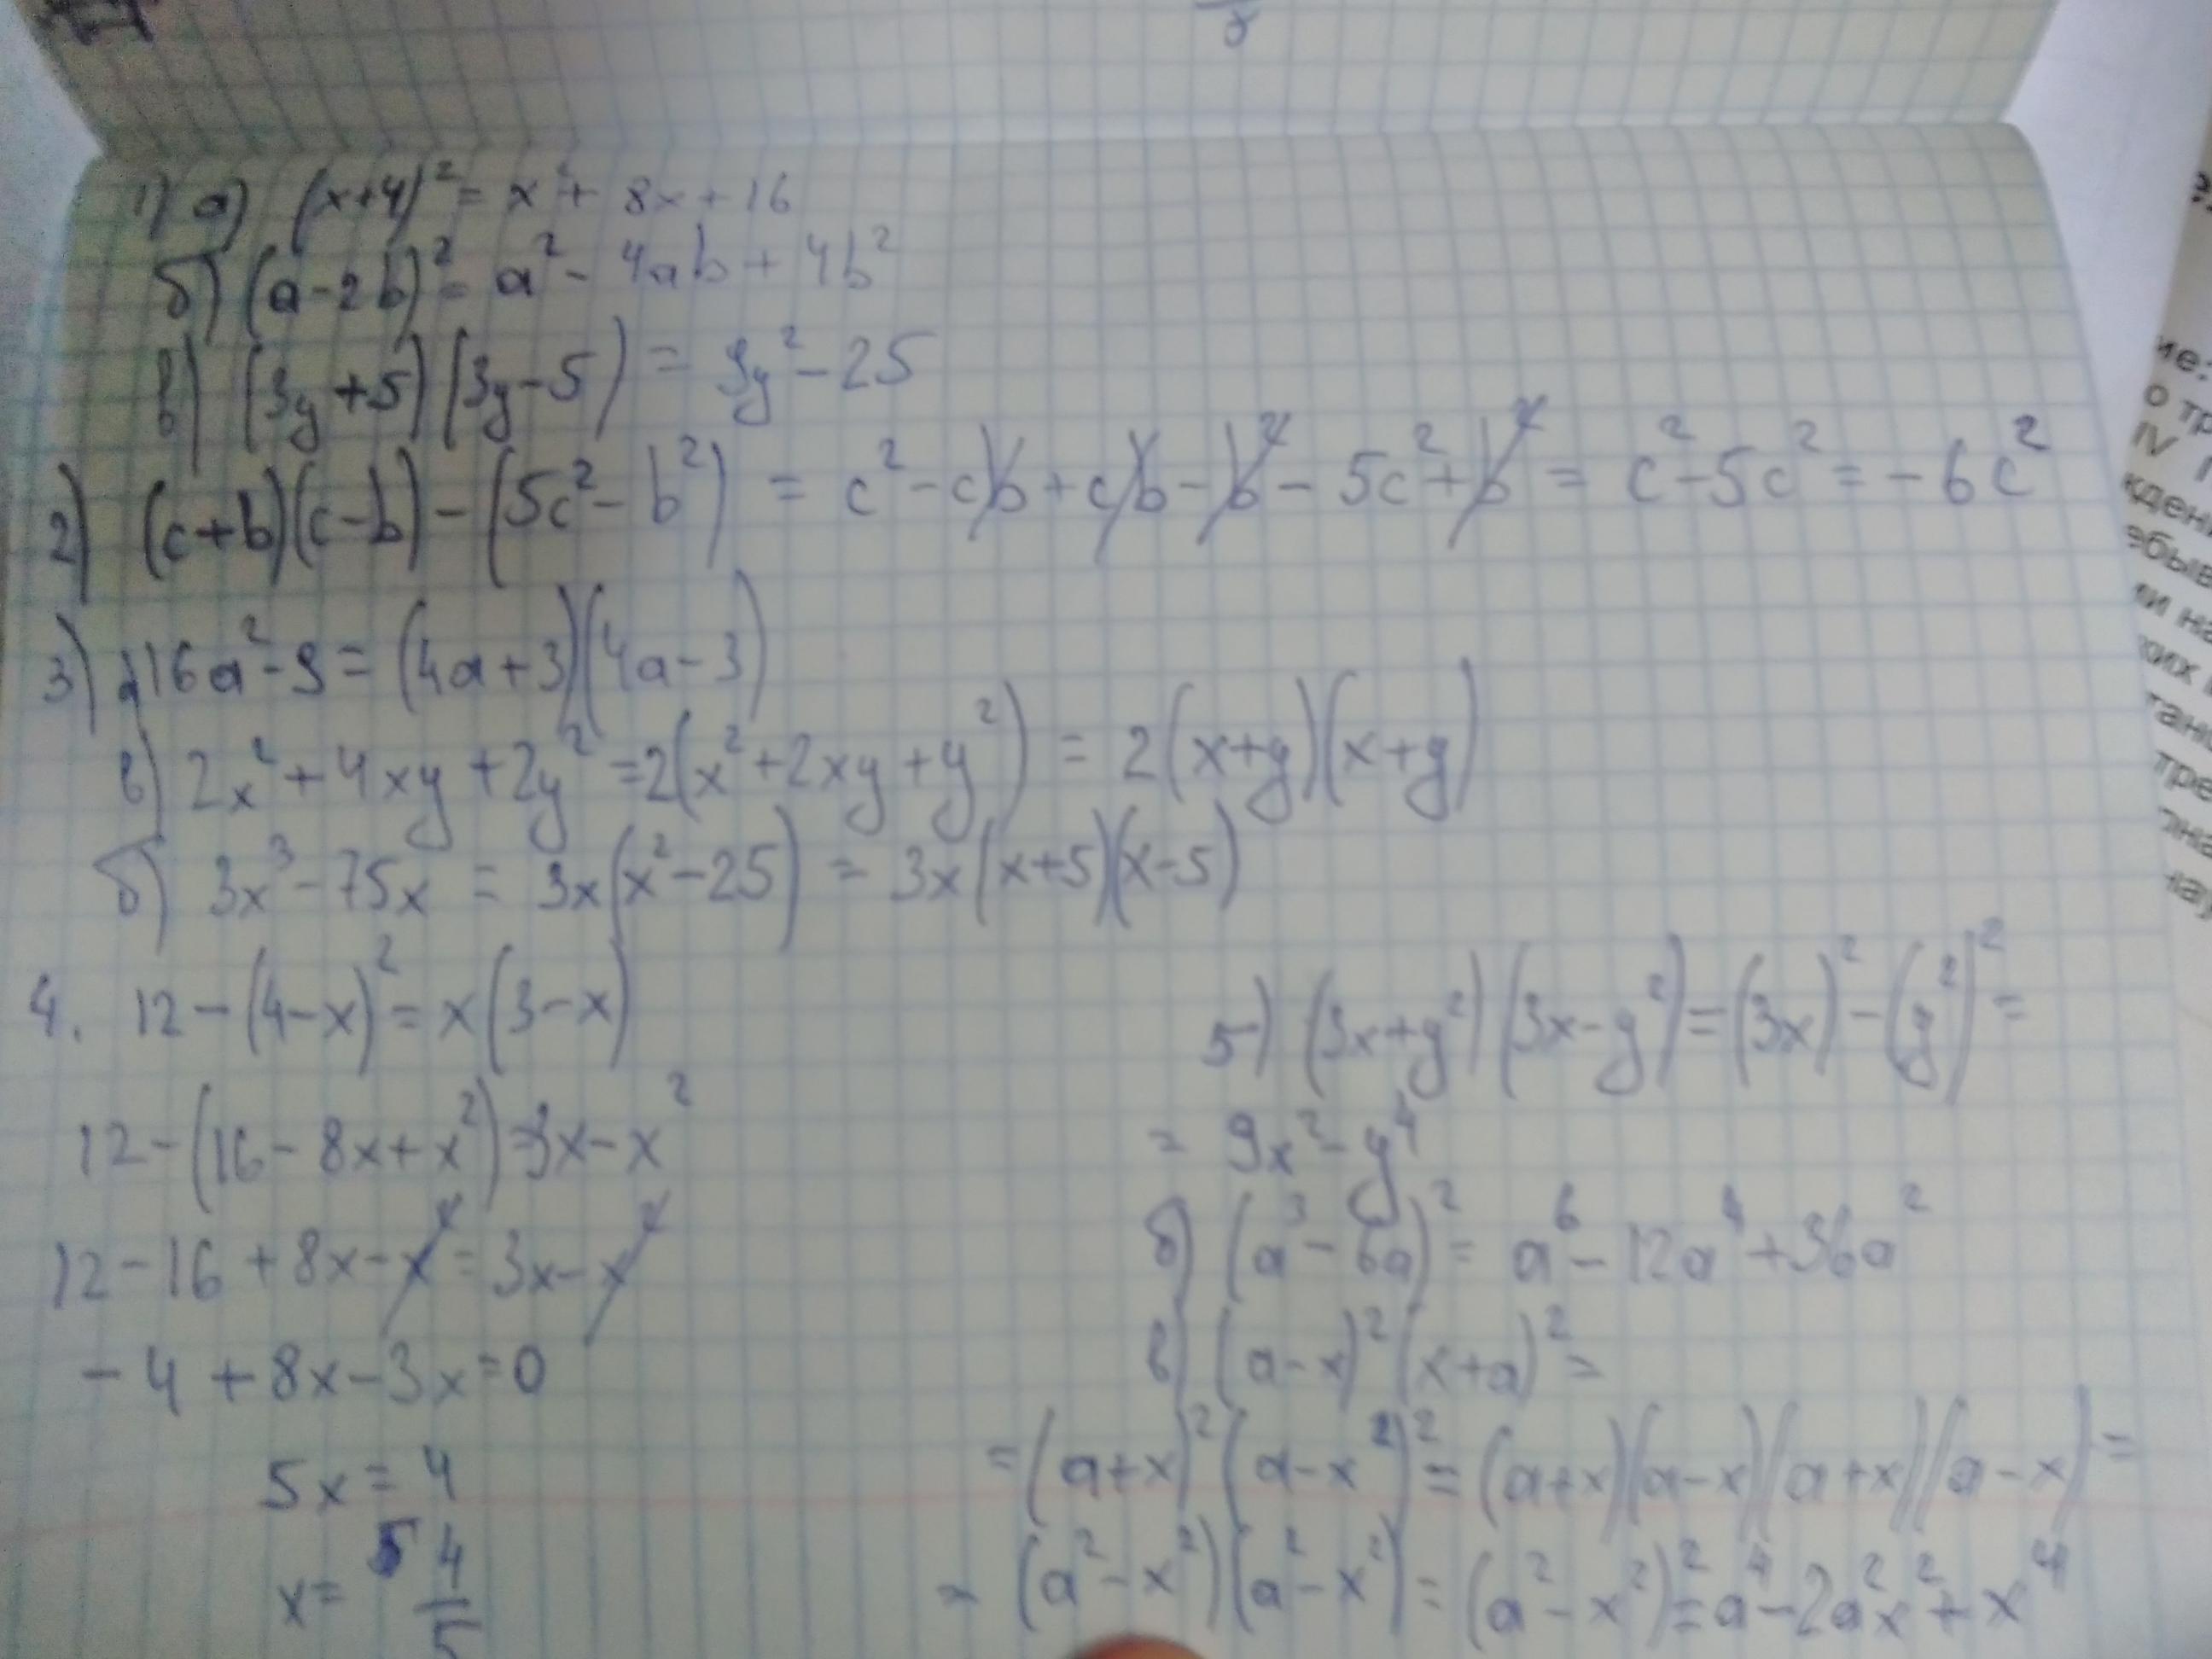 1) а) (x+4)² = x² + 8x + 16
б) (a-2b)² = a² - 4ab + 4b²
в) (3y+5)(3y-5) = 9y² - 25
2) (c+b)(c-b) - (5c² - b²) = c² - cb + cb - b² - 5c² + b² = c² - 5c² = -6c²
3) 16a² - 9 = (4a+3)(4a-3)
в) 2x² + 4xy + 2y² = 2(x² + 2xy + y²) = 2(x+y)(x+y)
б) 3x³ - 75x = 3x(x² - 25) = 3x(x+5)(x-5)
4. 12 - (4-x)² = x(3-x)
12 - (16 - 8x + x²) = 3x - x²
12 - 16 + 8x - x² = 3x - x²
-4 + 8x - 3x = 0
5x = 4
x = 4/5
5) (3x+y²)(3x-y²) = (3x)² - (y²)² =
= 9x² - y⁴
б) (a³ - 6a)² = a⁶ - 12a⁴ + 36a²
в) (a-x)²(x+a)² =
= (a+x)²(a-x²)² = (a+x)(a-x)(a+x)(a-x) =
= (a²-x²)(a²-x²) = (a²-x²)² = a⁴ - 2a²x² + x⁴
ие:
о тр
IV
ждени
ебыв
ии на
ких
тре